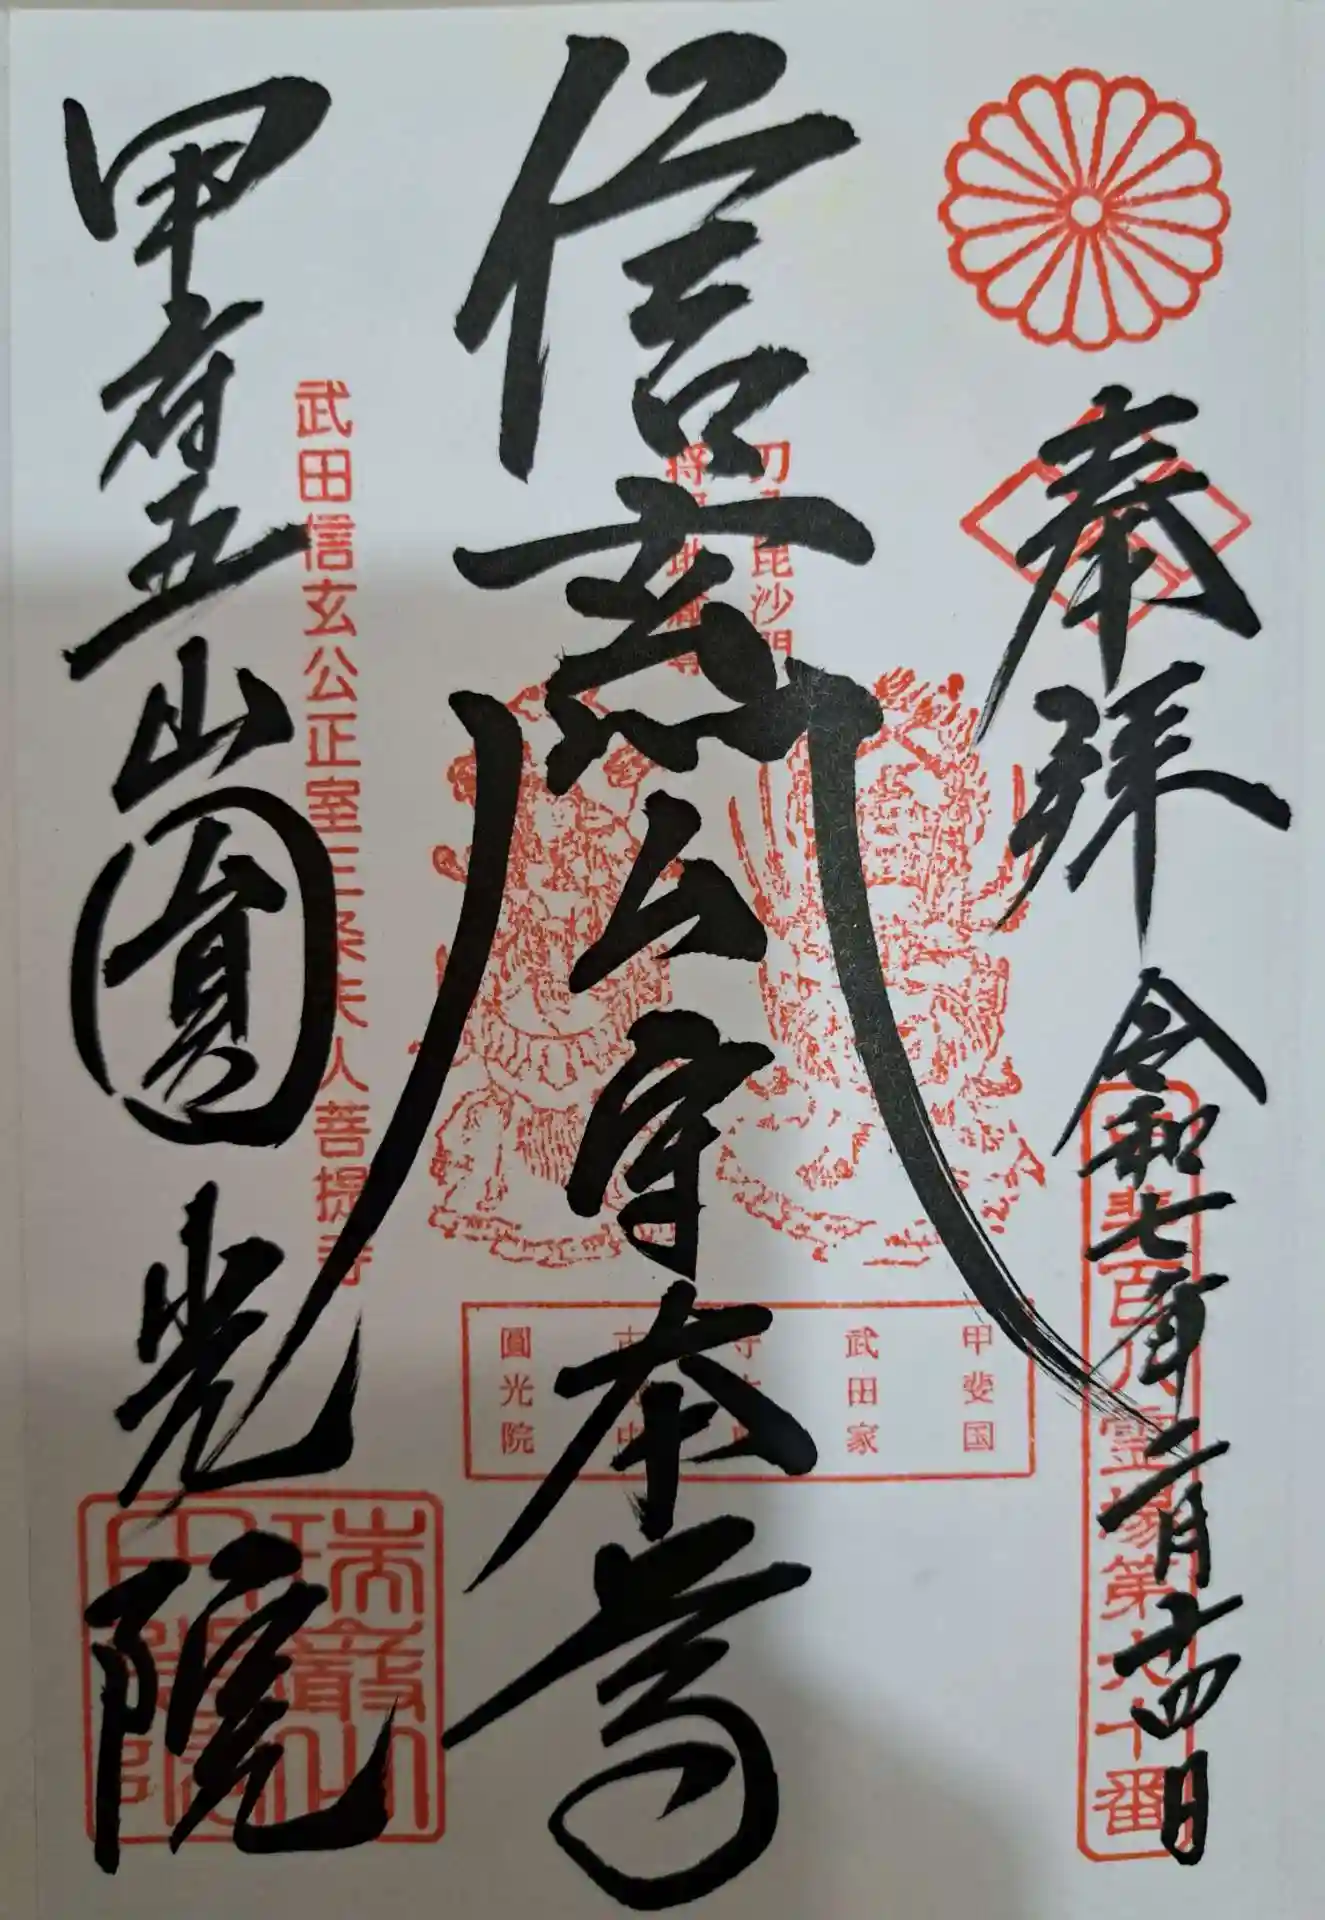 奉拝
令和七年二月十四日
甲斐百八霊場第六十番
信玄公守本尊
刀八毘沙門
将軍地蔵尊
甲斐国
武田家
圓光院
武田信玄公正室三条夫人菩提寺
甲府五山圓光院
瑞巌山